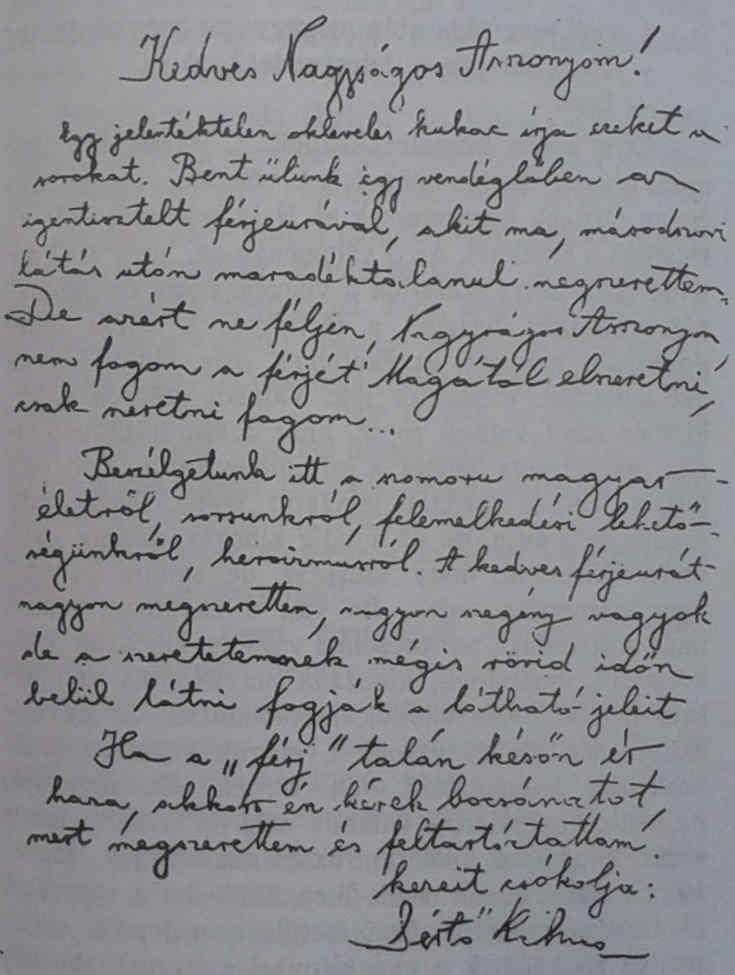 Kedves Nagyságos Asszonyom!
Egy jelentéktelen okleveles kukac írja ezeket a
sorokat. Bent ülünk egy vendéglőben az
igentisztelt férjeurával, akit ma, másodszori
látás után maradéktalanul megszerettem.
De azért ne féljen, Nagyságos Asszonyom,
nem fogom a férjét Magától elszeretni,
csak szeretni fogom...
Beszélgetünk itt a szomorú magyar
életről, sorsunkról, felemelkedési lehető-
ségünkről, heroizmusról. A kedves férjeurát
nagyon megszerettem, nagyon szegény vagyok
de a szeretetemnek mégis rövid időn
belül látni fogják a látható jeleit
Ha a „férj" talán későn ér
haza, akkor én kérek bocsánatot,
mert megszerettem és feltartóztattam.
kezeit csókolja:
Sértő